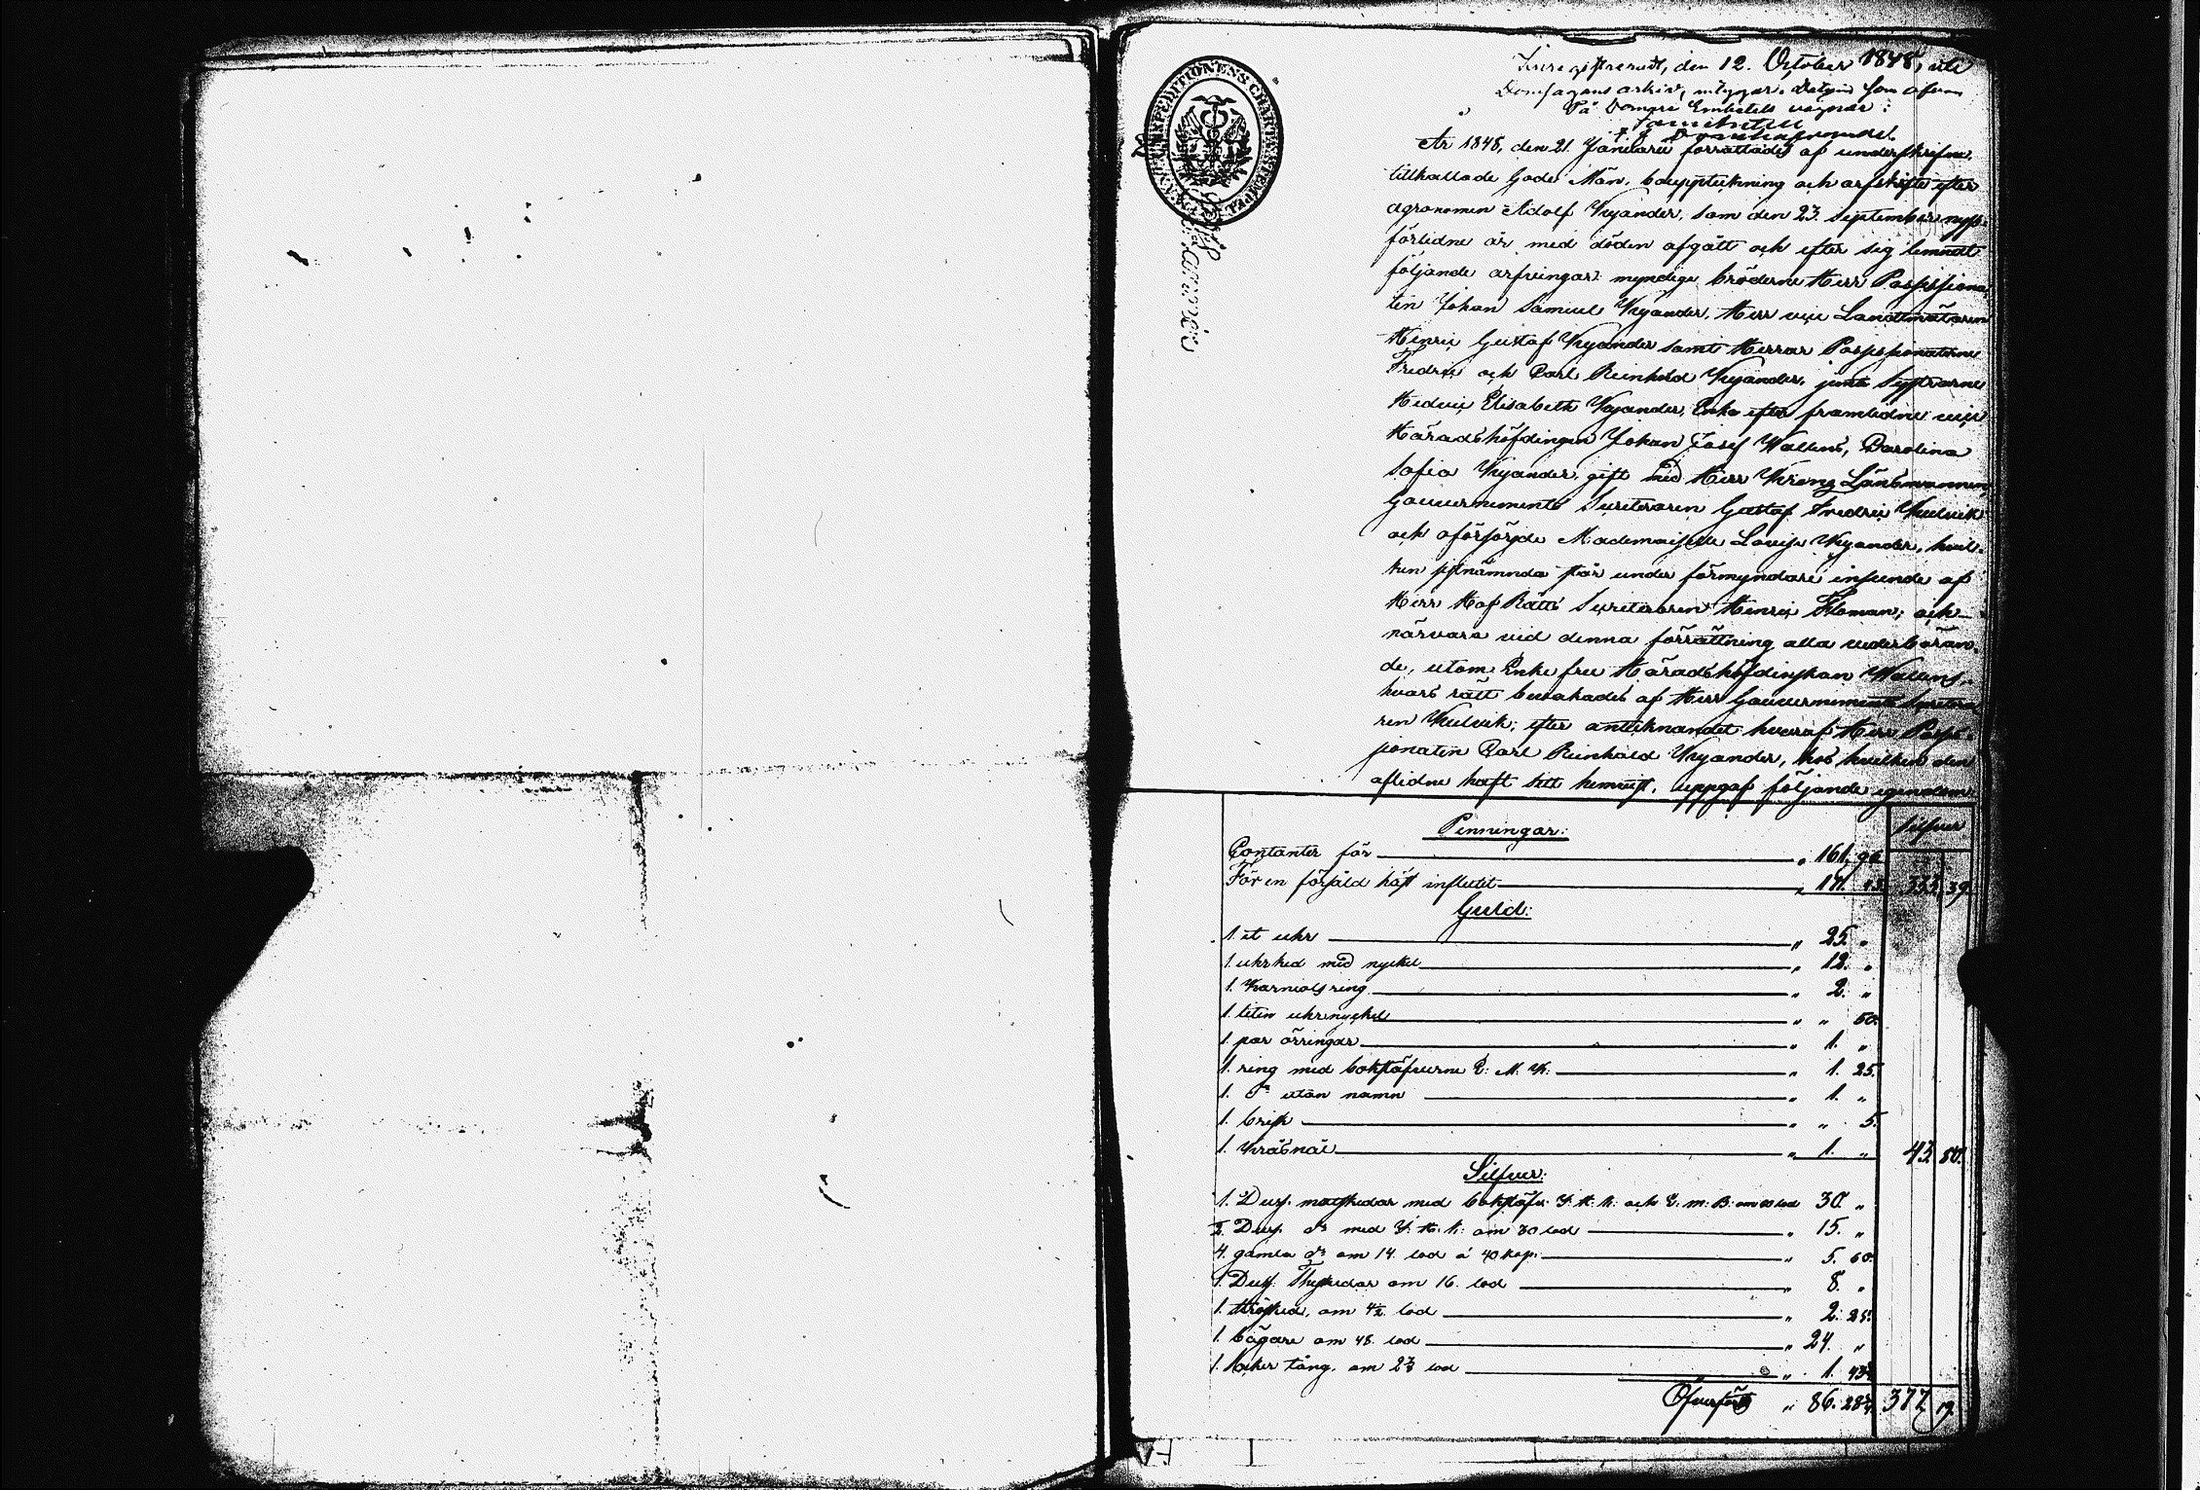 Inregistreradt, den 12. October 1848, uti
Domsagans arkiv, intygar.
På Domare Embetets vägnar:
År 1848, den 21. Januarii förrättades af underskrifne,
tillkallade Gode Män, bouppteckning och arfskifte efter
agronomen Adolf Kyander, som den 23. September nyss-
förlidne år med döden afgått och efter sig lemnat
följande arfvingar: myndige bröderne Herr Possessiona-
ten Johan Samuel Kyander, Herr vice Landtmätaren
Henric Gustaf Kyander samt Herrar Possessionaterne
Fredric och Carl Reinhold Kyander, jemte Systrarne
Hedvic Elisabeth Kyander, Enka efter framlidne vice
Häradshöfdingen Johan Josef Wallens, Carolina
Sofia Kyander, gift med Herr Krono Länsmannen,
Gouvernements Secreteraren Gustaf Fredric
och oförsörjde Mademoiselle Lovisa Kyander, hvil-
ken sistnämnda står under förmyndare inseende af
Herr Hof Rätts Secreteraren Henric Floman; och
närvaro vid denna förrättning alla vederböran-
de, utom Enke fru Häradshöfdinskan Wallens,
hvars rätt bevakades af Herr Gouvernements Secretera-
ren efter antecknandet hvaraf Herr Posses-
sionaten Carl Reinhold Kyander, hos hvilken den
aflidne haft sitt hemvist, uppgaf följande egendom:
Penningar: Silfver
Contanter för " 161. 96.
För en försåld häst influtit " 171. 43. 333. 39.
Guld:
1. et uhr " 25. "
1. uhrked med nyckel " 12. "
1. Karniolsring " 2. "
1. liten uhrnyckel " " 50.
1. par örringar " 1. "
1. ring med bokstäfverne E. M. K. " 1. 25.
1. d:o utan namn " 1. "
1. brisk " " 5.
1. Kråsnål " 1. " 43. 80.
Silfver:
1. Duss. matskedar med bokstäfv. J. H. K. och E. M. B. om 60 lod 30. "
½ Duss. d:o med J. H. K. om 30 lod " 15. "
4. gamla d:o om 14. lod á 40 kop. " 5. 60.
1. Duss. Theskedar om 16. lod " 8. "
1. Ströskед, om 4½ lod " 2. 25.
1. bägare om 48. lod " 24. "
1. Socker tång, om 2⅞ lod " 1. 43¾
Öfverföres " 86. 28¾ 377. 19.